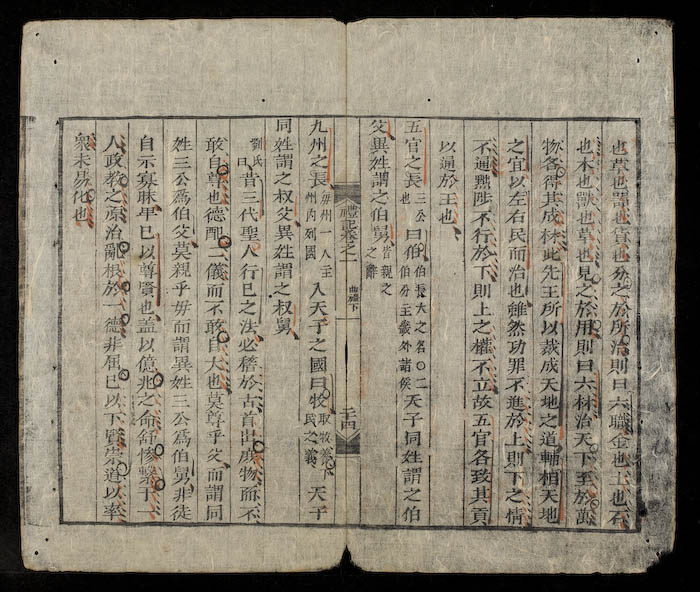 也草也器也貨也分之於所治則曰六職金也土也石
也木也獸也草也見之於用則曰六材治天下至於萬
物各得其成材此先王所以裁成天地之道輔相天地
之宜以左右民而治也雖然功罪不進於上則下之情
不通黜陟不行於下則上之權不立故五官各致其貢
以通於王也
五官之長三公也曰伯伯長大之名〇二伯分主畿外諸候天子同姓謂之伯
父異姓謂之伯舅皆親之之辭
禮記卷之一 曲禮下 二十四
九州之長每州一人主州內列國入天子之國曰牧取牧養下民之義天子
同姓謂之叔父異姓謂之叔舅
劉氏曰昔三代聖人行已之法必稽於古首出庶物而不
敢自尊也德配二儀而不敢自大也莫尊乎父而謂同
姓三公為伯父莫親乎母而謂異姓三公為伯舅非徒
自示寡昧早已以尊賢也蓋以億兆之命舒慘繫于一
人政教之源治亂根於一德非屈已以下賢崇道以率
衆未易化也